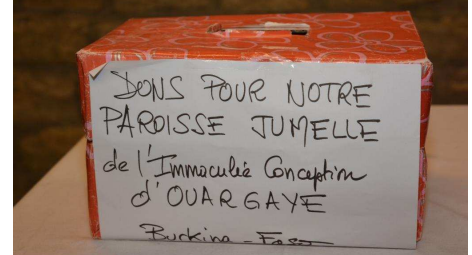 DONS POUR NOTRE
PAROISSE JUMELLE
de l'Immaculée Conception
d'OUARGAYE
Burkina-Faso